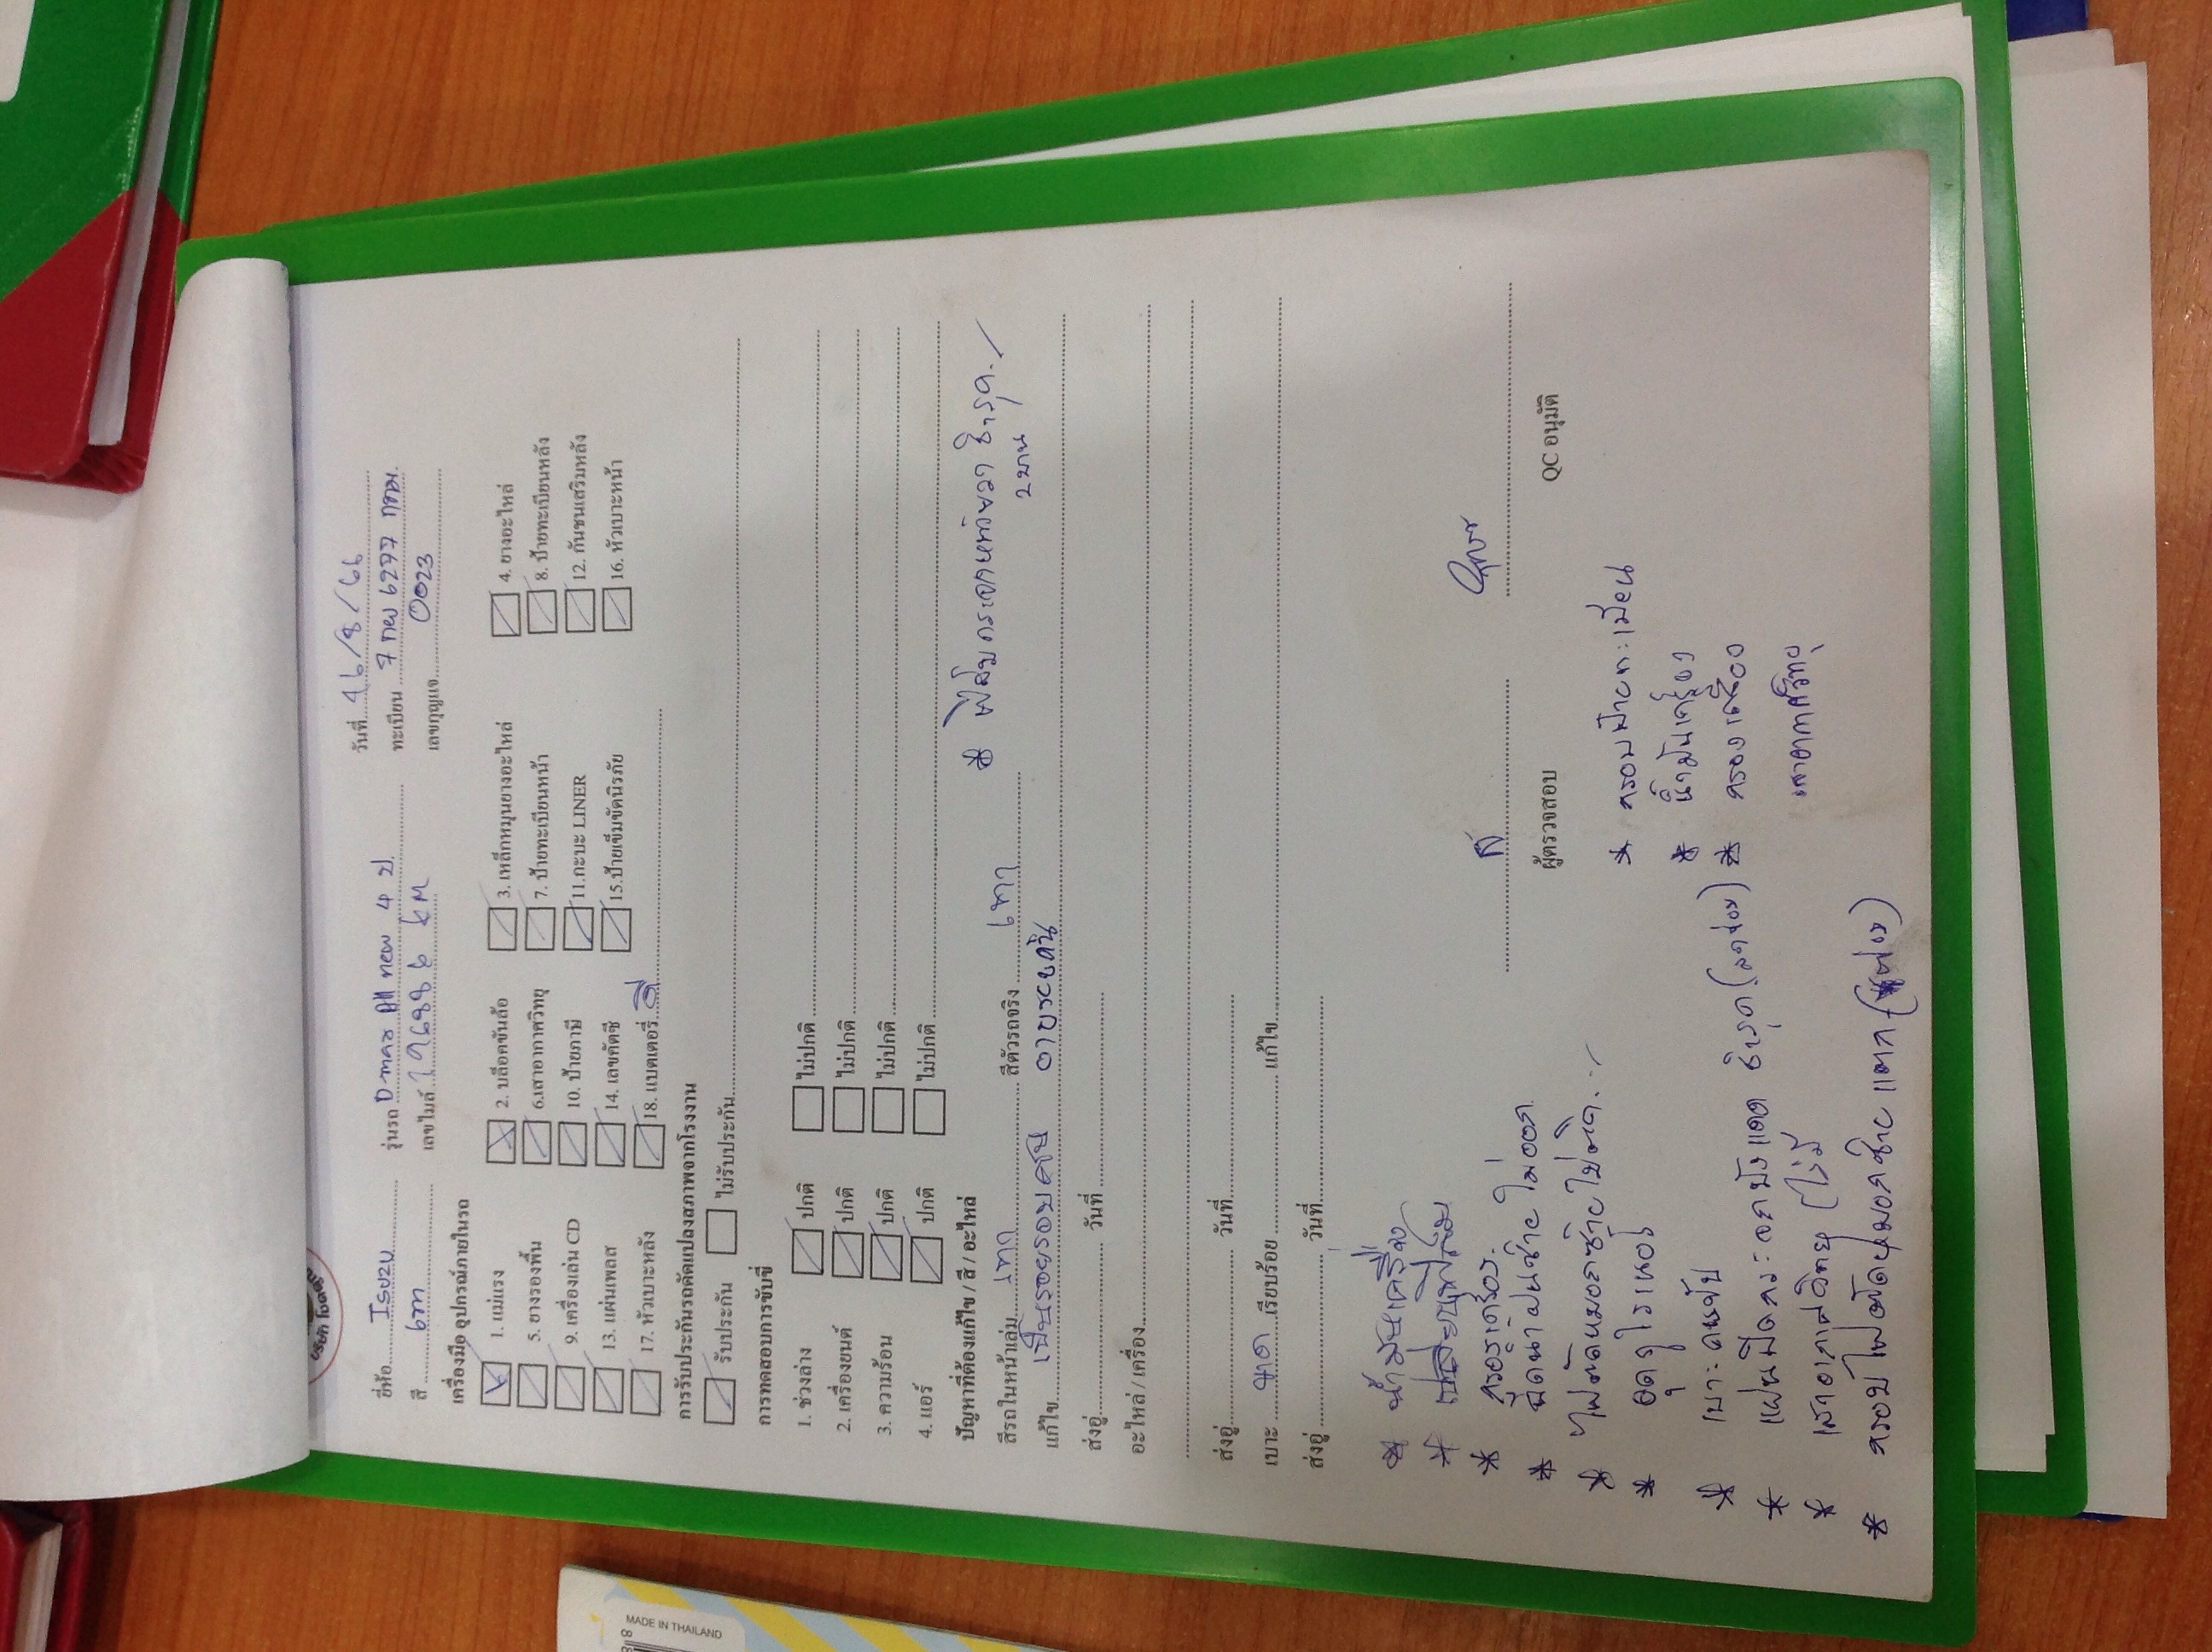 ยี่ห้อ Isuzu รุ่นรถ Dmax All new 4 ป. วันที่ 16/8/66
สี เทา เลขไมล์ 196886 km ทะเบียน 7 กพ 6297 กทม.
เลขกุญแจ 0023
เครื่องมือ อุปกรณ์ภายในรถ
1. แม่แรง 2. บล็อคขันล้อ 3. เหล็กหมุนยางอะไหล่ 4. ยางอะไหล่
5. ยางรองพื้น 6.เสาอากาศวิทยุ 7. ป้ายทะเบียนหน้า 8. ป้ายทะเบียนหลัง
9. เครื่องเล่น CD 10. ป้ายภาษี 11.กะบะ LINER 12. กันชนเสริมหลัง
13. แผ่นเพลส 14. เลขคัตซี 15.ป้ายเข็มขัดนิรภัย 16. หัวเบาะหน้า
17. หัวเบาะหลัง 18. แบตเตอรี่
การรับประกันรถดัดแปลงสภาพจากโรงงาน
รับประกัน ไม่รับประกัน
การทดสอบการขับขี่
1. ช่วงล่าง ปกติ ไม่ปกติ
2. เครื่องยนต์ ปกติ ไม่ปกติ
3. ความร้อน ปกติ ไม่ปกติ
4. แอร์ ปกติ ไม่ปกติ
ปัญหาที่ต้องแก้ไข / สี / อะไหล่
* ฟิล์มกระจกหน้าขวา ชำรุด.
2 บาน
สีรถในหน้าเล่ม เทา สีตัวรถจริง เทา
แก้ไข เป็นรอยรอบคัน
ส่งอู่ วันที่
อะไหล่ / เครื่อง
ส่งอู่ วันที่
เบาะ ขาด เรียบร้อย แก้ไข
ส่งอู่ วันที่
ผู้ตรวจสอบ QC อนุมัติ
* น้ำมันเครื่อง
* กรองเครื่อง.
* ฉีดน้ำฝนซ้าย ไม่ออก
* ไฟตัดหมอกซ้ายไม่ติด.
* เบาะคนขับ
* แผ่นปิดกระจกบังแดด ชำรุด
* เสาอากาศวิทยุ (ไม่มี
* ครอบไฟตัดหมอกซ้าย แตก
* กรอบป้ายทะเบียน
* น้ำมันเครื่อง
* กรองเครื่อง
เสาอากาศวิทยุ
MADE IN THAILAND